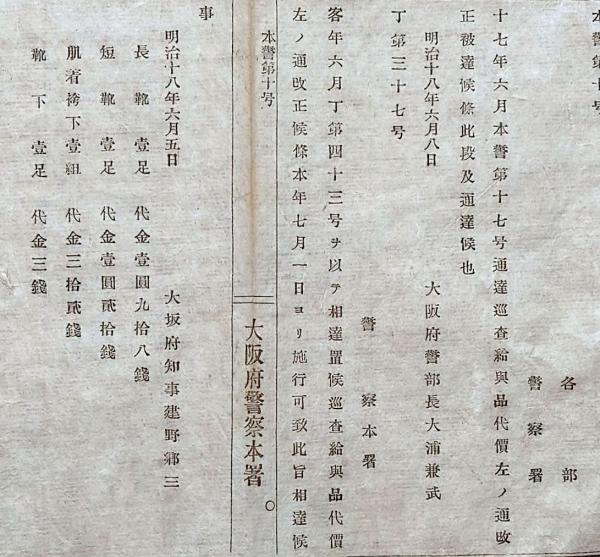 本警第十号
各部
警察署
十七年六月本警第十七号通達巡査給與品代價左ノ通改
正被達候條此段及通達候也
明治十八年六月八日
大阪府警部長大浦兼武
丁第三十七号
警察本署
客年六月丁第四十三号ヲ以テ相達置候巡査給與品代價
左ノ通改正候條本年七月一日ヨリ施行可致此旨相達候
本警第十号
大阪府警察本署
事
明治十八年六月五日
大坂府知事建野郷三
長靴壹足代金壹圓九拾八錢
短靴壹足代金壹圓貳拾錢
肌着袴下壹組代金三拾貳錢
靴下壹足代金三錢